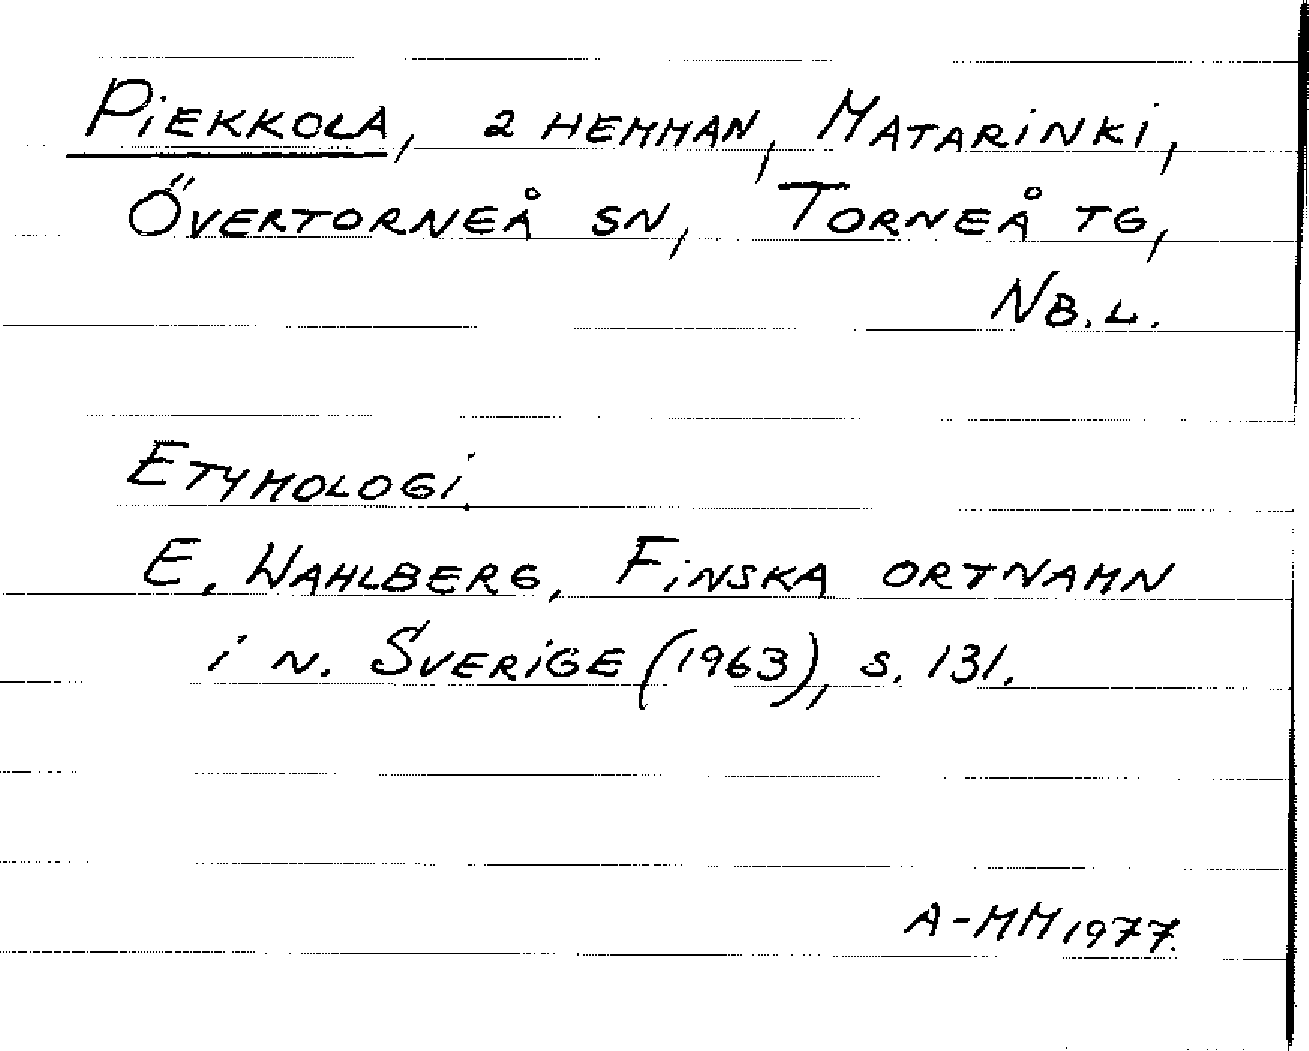 Piekkola, 2 hemman, Matarinki,
Övertorneå sn, Torneå tg,
Nb.l.
Etymologi.
E. Wahlberg, Finska ortnamn
i n. Sverige (1963), s. 131.
A-MM 1977.